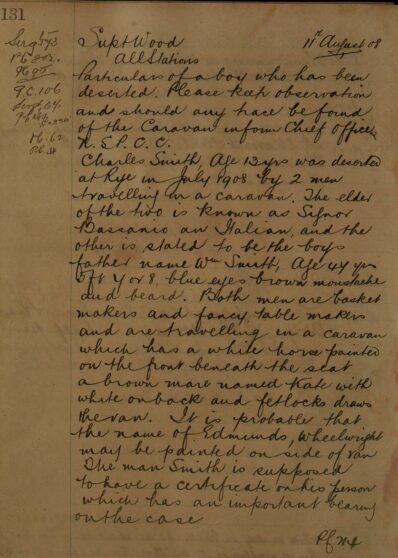 131
Serg 573
Supt Wood
11th August 08
All Stations
Particulars of a boy who has been
deserted. Please keep observation
and should any trace be found
of the Caravan inform Chief Office
N.S.P.C.C.
Charles Smith, Age 13 yrs was deserted
at Rye in July 1908 by 2 men
travelling in a caravan. The elder
of the two is known as Signor
Bassanio an Italian, and the
other is stated to be the boys
father name Wm Smith, Age 44 yrs
5ft 7 or 8, blue eyes brown moustache
and beard. Both men are basket
makers and fancy table makers
and are travelling in a caravan
which has a white horse painted
on the front beneath the seat
a brown mare named Kate with
white on back and fetlocks draws
the van. It is probable that
the name of Edmunds, Wheelwright
may be painted on side of van
The man Smith is supposed
to have a certificate on his person
which has an important bearing
on the case